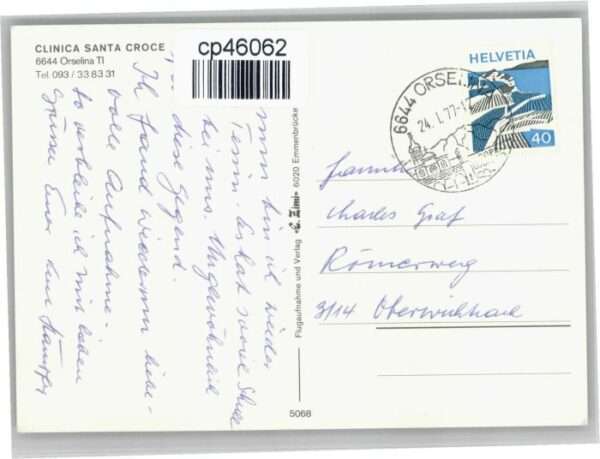 CLINICA SANTA CROCE
6644 Orselina TI
Tel. 093 / 33 83 31
cp46062
HELVETIA
40
6644 ORSELINA
24.1.77-
nun bin ich wieder
im Tessin. Es hat soviel Schnee
bei uns. Ungewöhnlich
diese Gegend.
Ich fand wiederum liebe-
volle Aufnahme.
So verbleibe ich mit lieben
Grüsse Euer
Familie
Charles Graf
Römerweg
3114 Oberwichtrach
Flugaufnahme und Verlag 6020 Emmenbrücke
5068